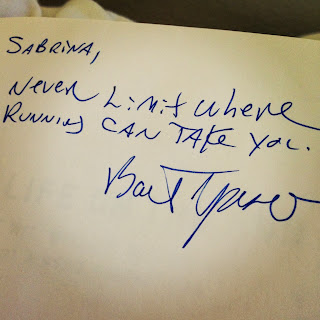 SABRINA,
NEVER LIMIT WHERE
RUNNING CAN TAKE YOU.
Bart Yasso